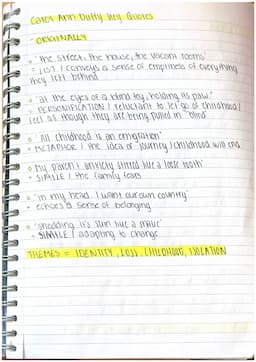 Carol Ann Duffy Key Quotes
- ORIGINALLY
o "the street, the house, the vacant rooms"
- LIST / conveys a sense of emptiness of everything
they left behind
o "at the eyes of a blind toy, holding its paw."
- PERSONIFICATION / reluctant to let go of childhood /
feel as though they are being pulled in "blind"
o 'All childhood is an emigration'
- METAPHOR / the idea of 'journey' / childhood will end
o 'My parent's anxiety stirred like a loose tooth'
- SIMILE / the family fears
o 'in my head. I want our own country'
- echoes a sense of belonging
o 'shedding it's skin like a snake'
- SIMILE / adapting to change
THEMES = IDENTITY, LOSS, CHILDHOOD, ISOLATION